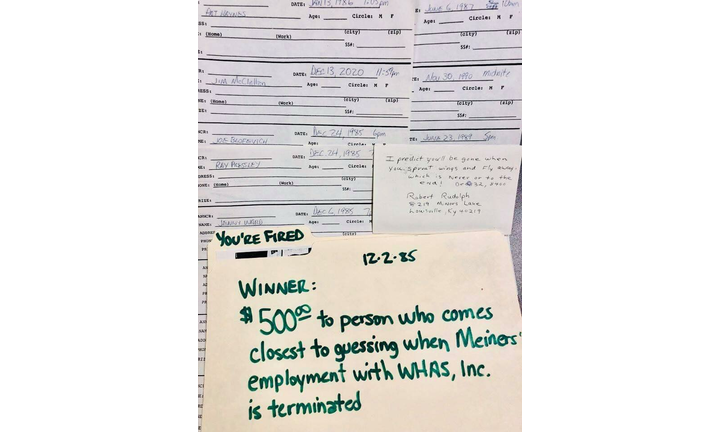 DATE: JAN 15, 1986 1:05pm
PAT HAYNES
Age: Circle: M F
(Home) (Work) (city) (zip)
SS#:
DATE: DEC 13, 2020 11:59pm
JIM McClellan
Age: Circle: M F
(Home) (Work) (city) (zip)
SS#:
DATE: DEC 24, 1985 6pm
JOE
DATE: DEC 24, 1985
RAY PRESLEY
Age: Circle:
(Home) (Work) (city)
SS#:
DATE: DEC 6, 1985
Age: Circle:
(city)
JUNE 6, 1987
Age: Circle: M F
(city) (zip)
SS#:
NOV 30, 1990 midnite
Age: Circle: M F
(city) (zip)
SS#:
JUNE 23, 1989 5pm
I predict you'll be gone when
you sprout wings and fly away.
which is never or to the
end!
Robert Rudolph
8219 Minors Lane
Louisville, Ky 40219
YOU'RE FIRED
12-2-85
WINNER:
$500⁰⁰ to person who comes
closest to guessing when Meiners'
employment with WHAS, Inc.
is terminated